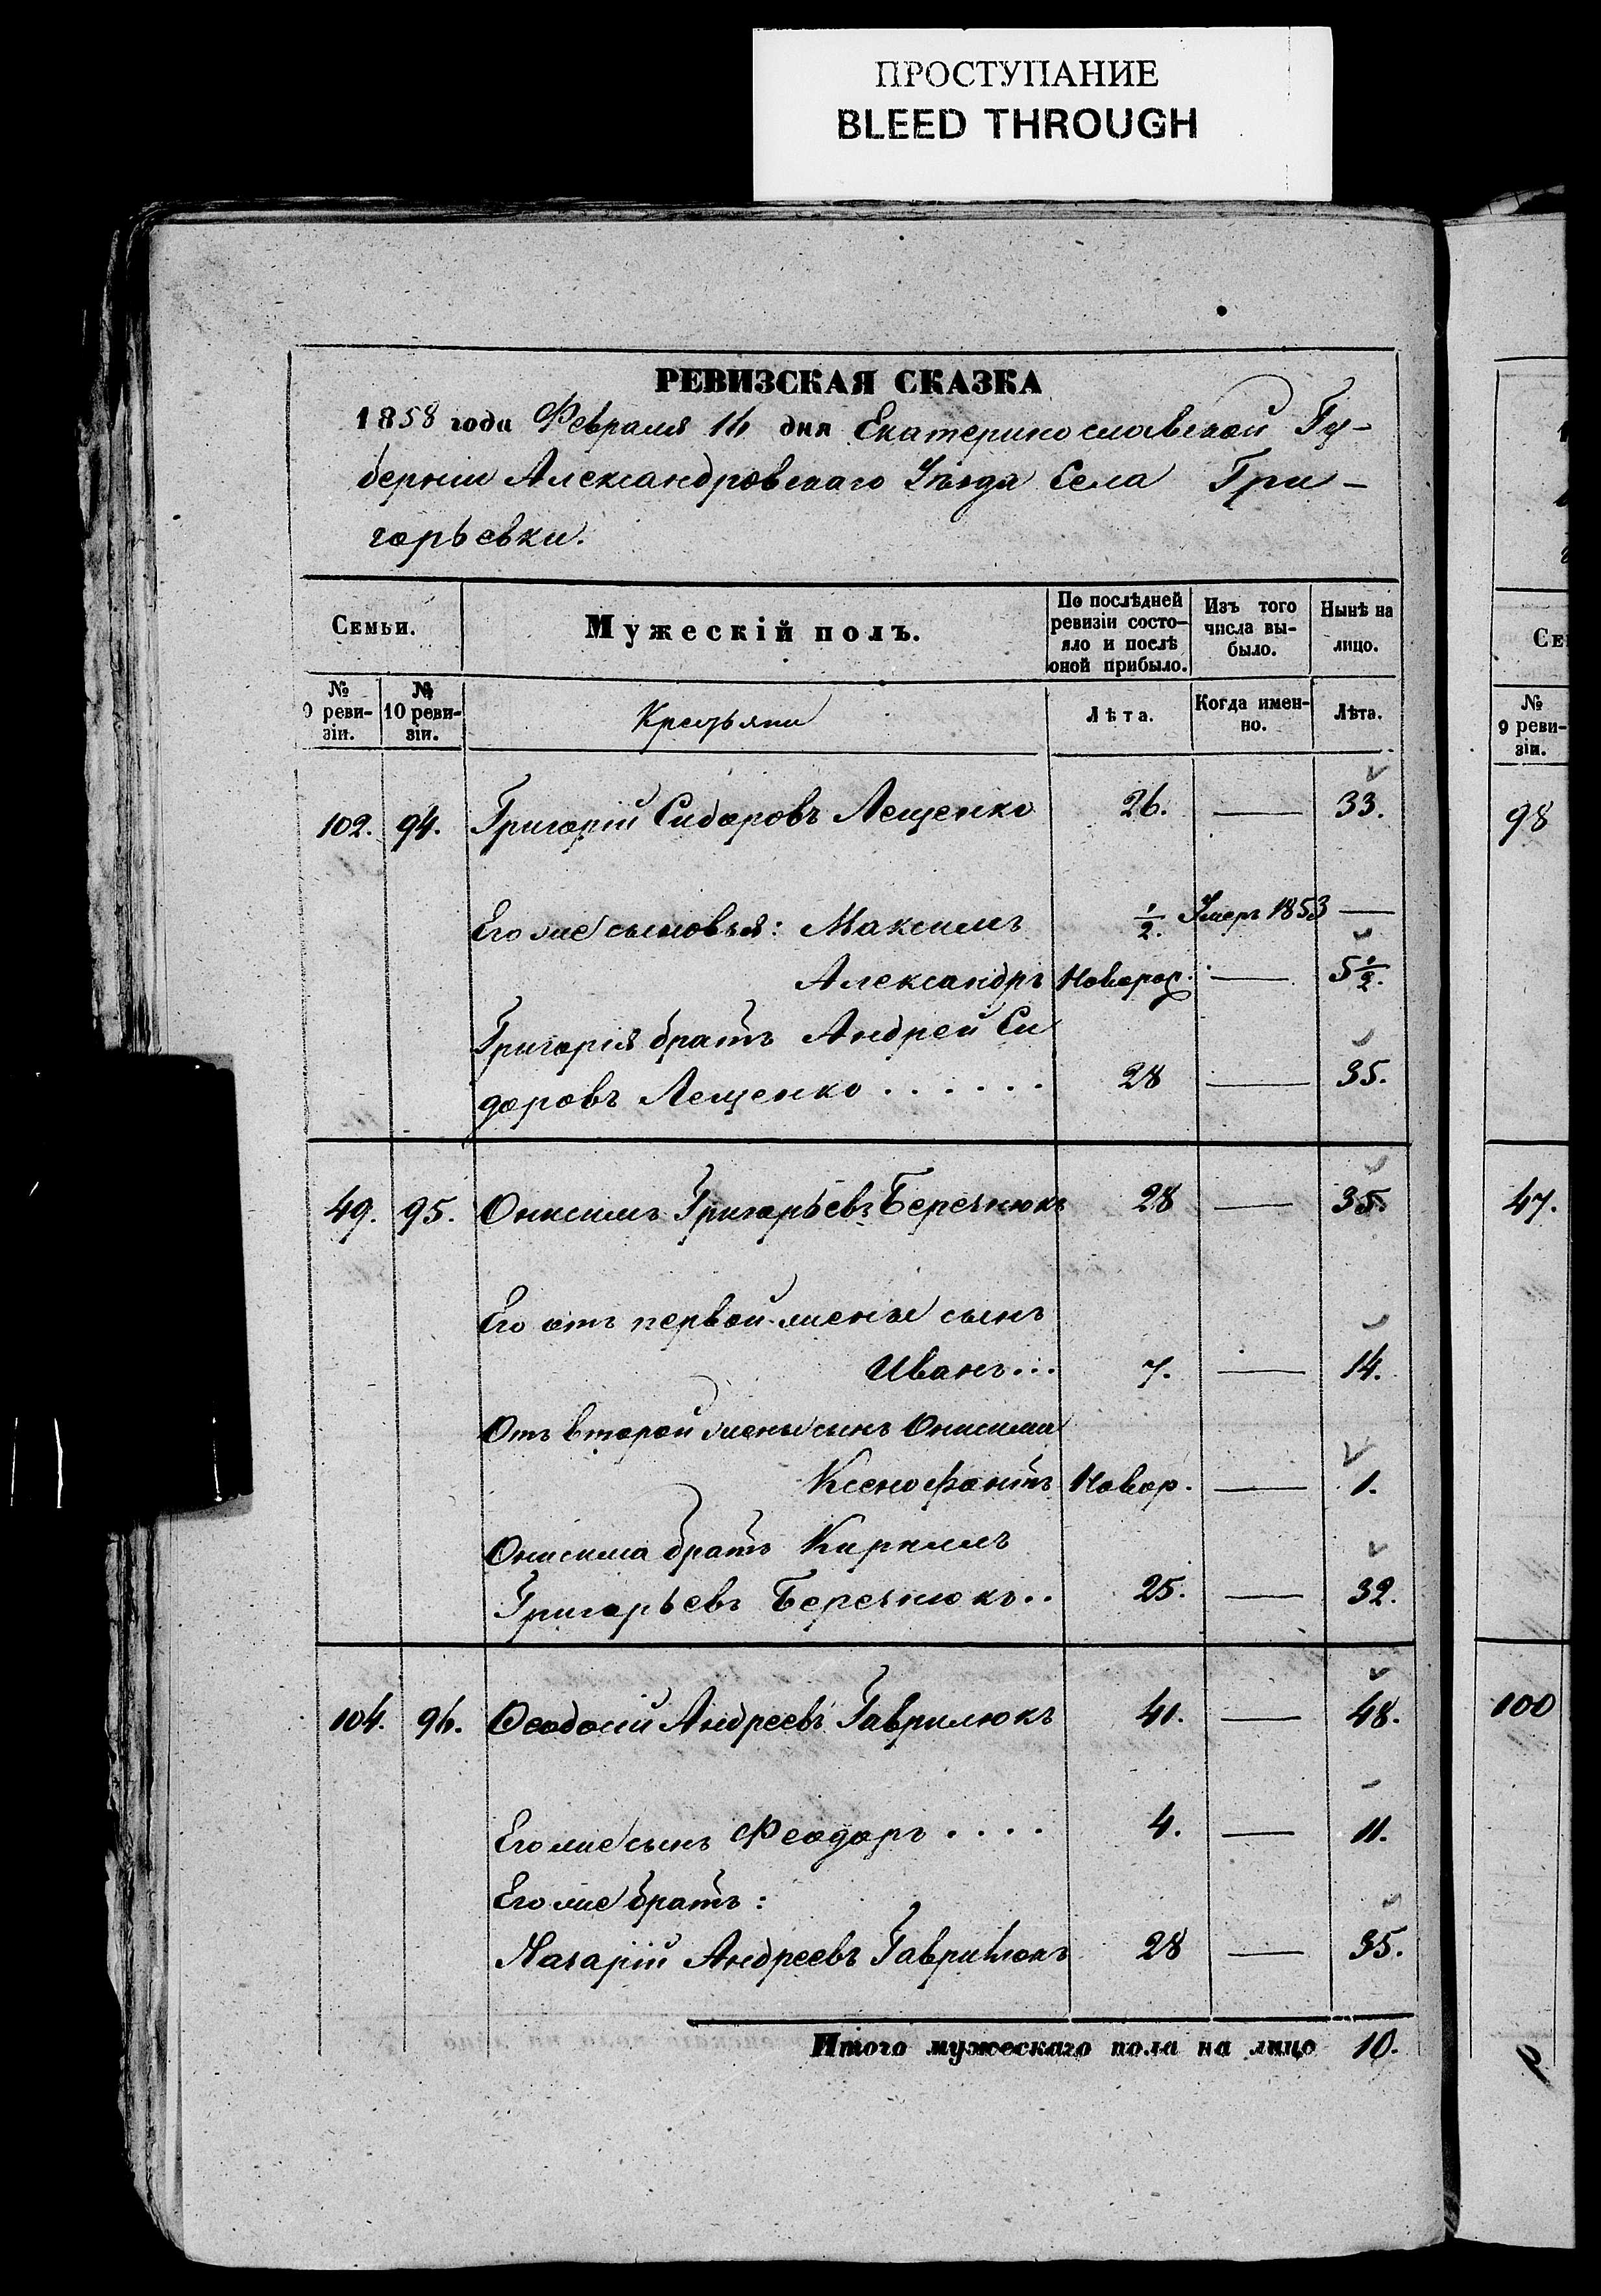 ПРОСТУПАНИЕ
BLEED THROUGH
РЕВИЗСКАЯ СКАЗКА
1858 года Февраля 14 дня Екатеринославской Гу-
берніи Александровскаго Уѣзда Села Гри-
горьевки.
Семьи. Мужескій полъ. По послѣдней ревизіи состо-яло и послѣ оной прибыло. Изъ того числа вы-было. Нынѣ на лицо.
№ 9 реви-зіи. № 10 реви-зіи. Крестьяни Лѣта. Когда имен-но. Лѣта.
102. 94. Григорій Сидоровъ Лещенко 26. — 33.
Его же сыновья: Максимъ 1/2. Умеръ 1853 —
Александръ Новорож. — 5 1/2.
Григорія братъ Андрей Си
доровъ Лещенко . . . . . . 28 — 35.
49. 95. Онисимъ Григорьевъ Беречнюкъ 28 — 35.
Его отъ первой жены сынъ
Иванъ... 7. — 14.
Отъ второй жены сынъ Онисима
Ксенофонтъ Новор. — 1.
Онисима братъ Кирилъ
Григорьевъ Беречнюкъ.. 25. — 32.
104. 96. Феодосій Андреевъ Гаврилюкъ 41. — 48.
Его же сынъ Феодоръ . . . . 4. — 11.
Его же братъ:
Назарій Андреевъ Гаврилюкъ 28 — 35.
Итого мужескаго пола на лицо 10.
Се
№ 9 реви-зіи.
98
47.
100